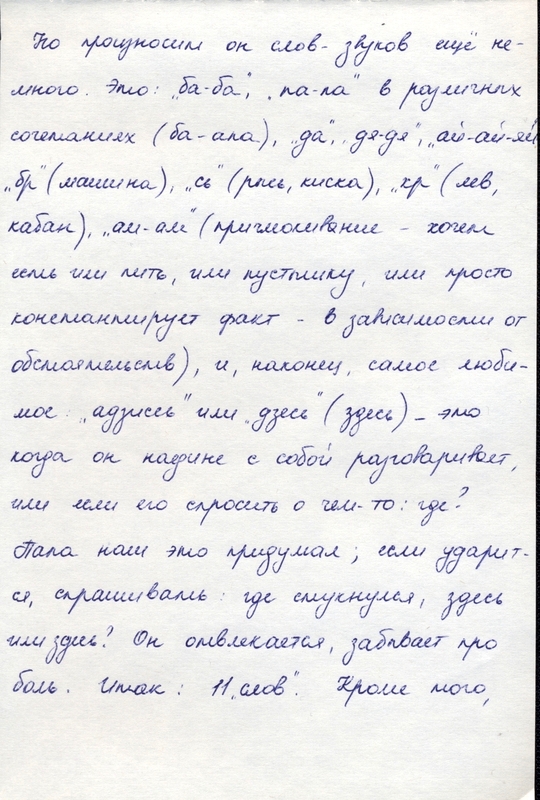 Но произносит он слов-звуков ещё не-
много. Это: „ба-ба", „па-па" в различных
сочетаниях (ба-апа), „да", „дя-дя", „ай-ай-яй",
„бр" (машина), „сь" (рысь, киска), „хр" (лев,
кабан), „ам-ам" (причмокивание - хочет
есть или пить, или пустышку, или просто
констатирует факт - в зависимости от
обстоятельств), и, наконец, самое люби-
мое: „адзиссь" или „дзесь" (здесь) - это
когда он наедине с собой разговаривает,
или если его спросить о чем-то: где?
Папа наш это придумал; если ударит-
ся, спрашивать: где стукнулся, здесь
или здесь? Он отвлекается, забывает про
боль. Итак: 11 „слов". Кроме того,